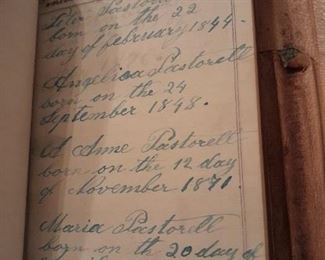 Pastorell
born on the 22
day of february 1844.
Angelica Pastorell
born on the 24
September 1848.
A Anne Pastorell
born on the 12 day
of November 1871.
Maria Pastorell
born on the 20 day of